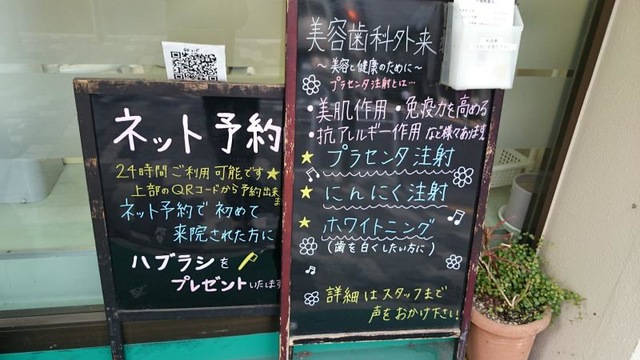 ネット予約
24時間ご利用可能です★
上部のQRコードから予約出来ま
ネット予約で初めて
来院された方に
ハブラシを
プレゼントいたします
美容歯科外来
～美容と健康のために～
プラセンタ注射とは…
・美肌作用・免疫力を高める
・抗アレルギー作用など様々あります
★プラセンタ注射
★にんにく注射
★ホワイトニング
(歯を白くしたい方に)
詳細はスタッフまで
声をおかけ下さい!